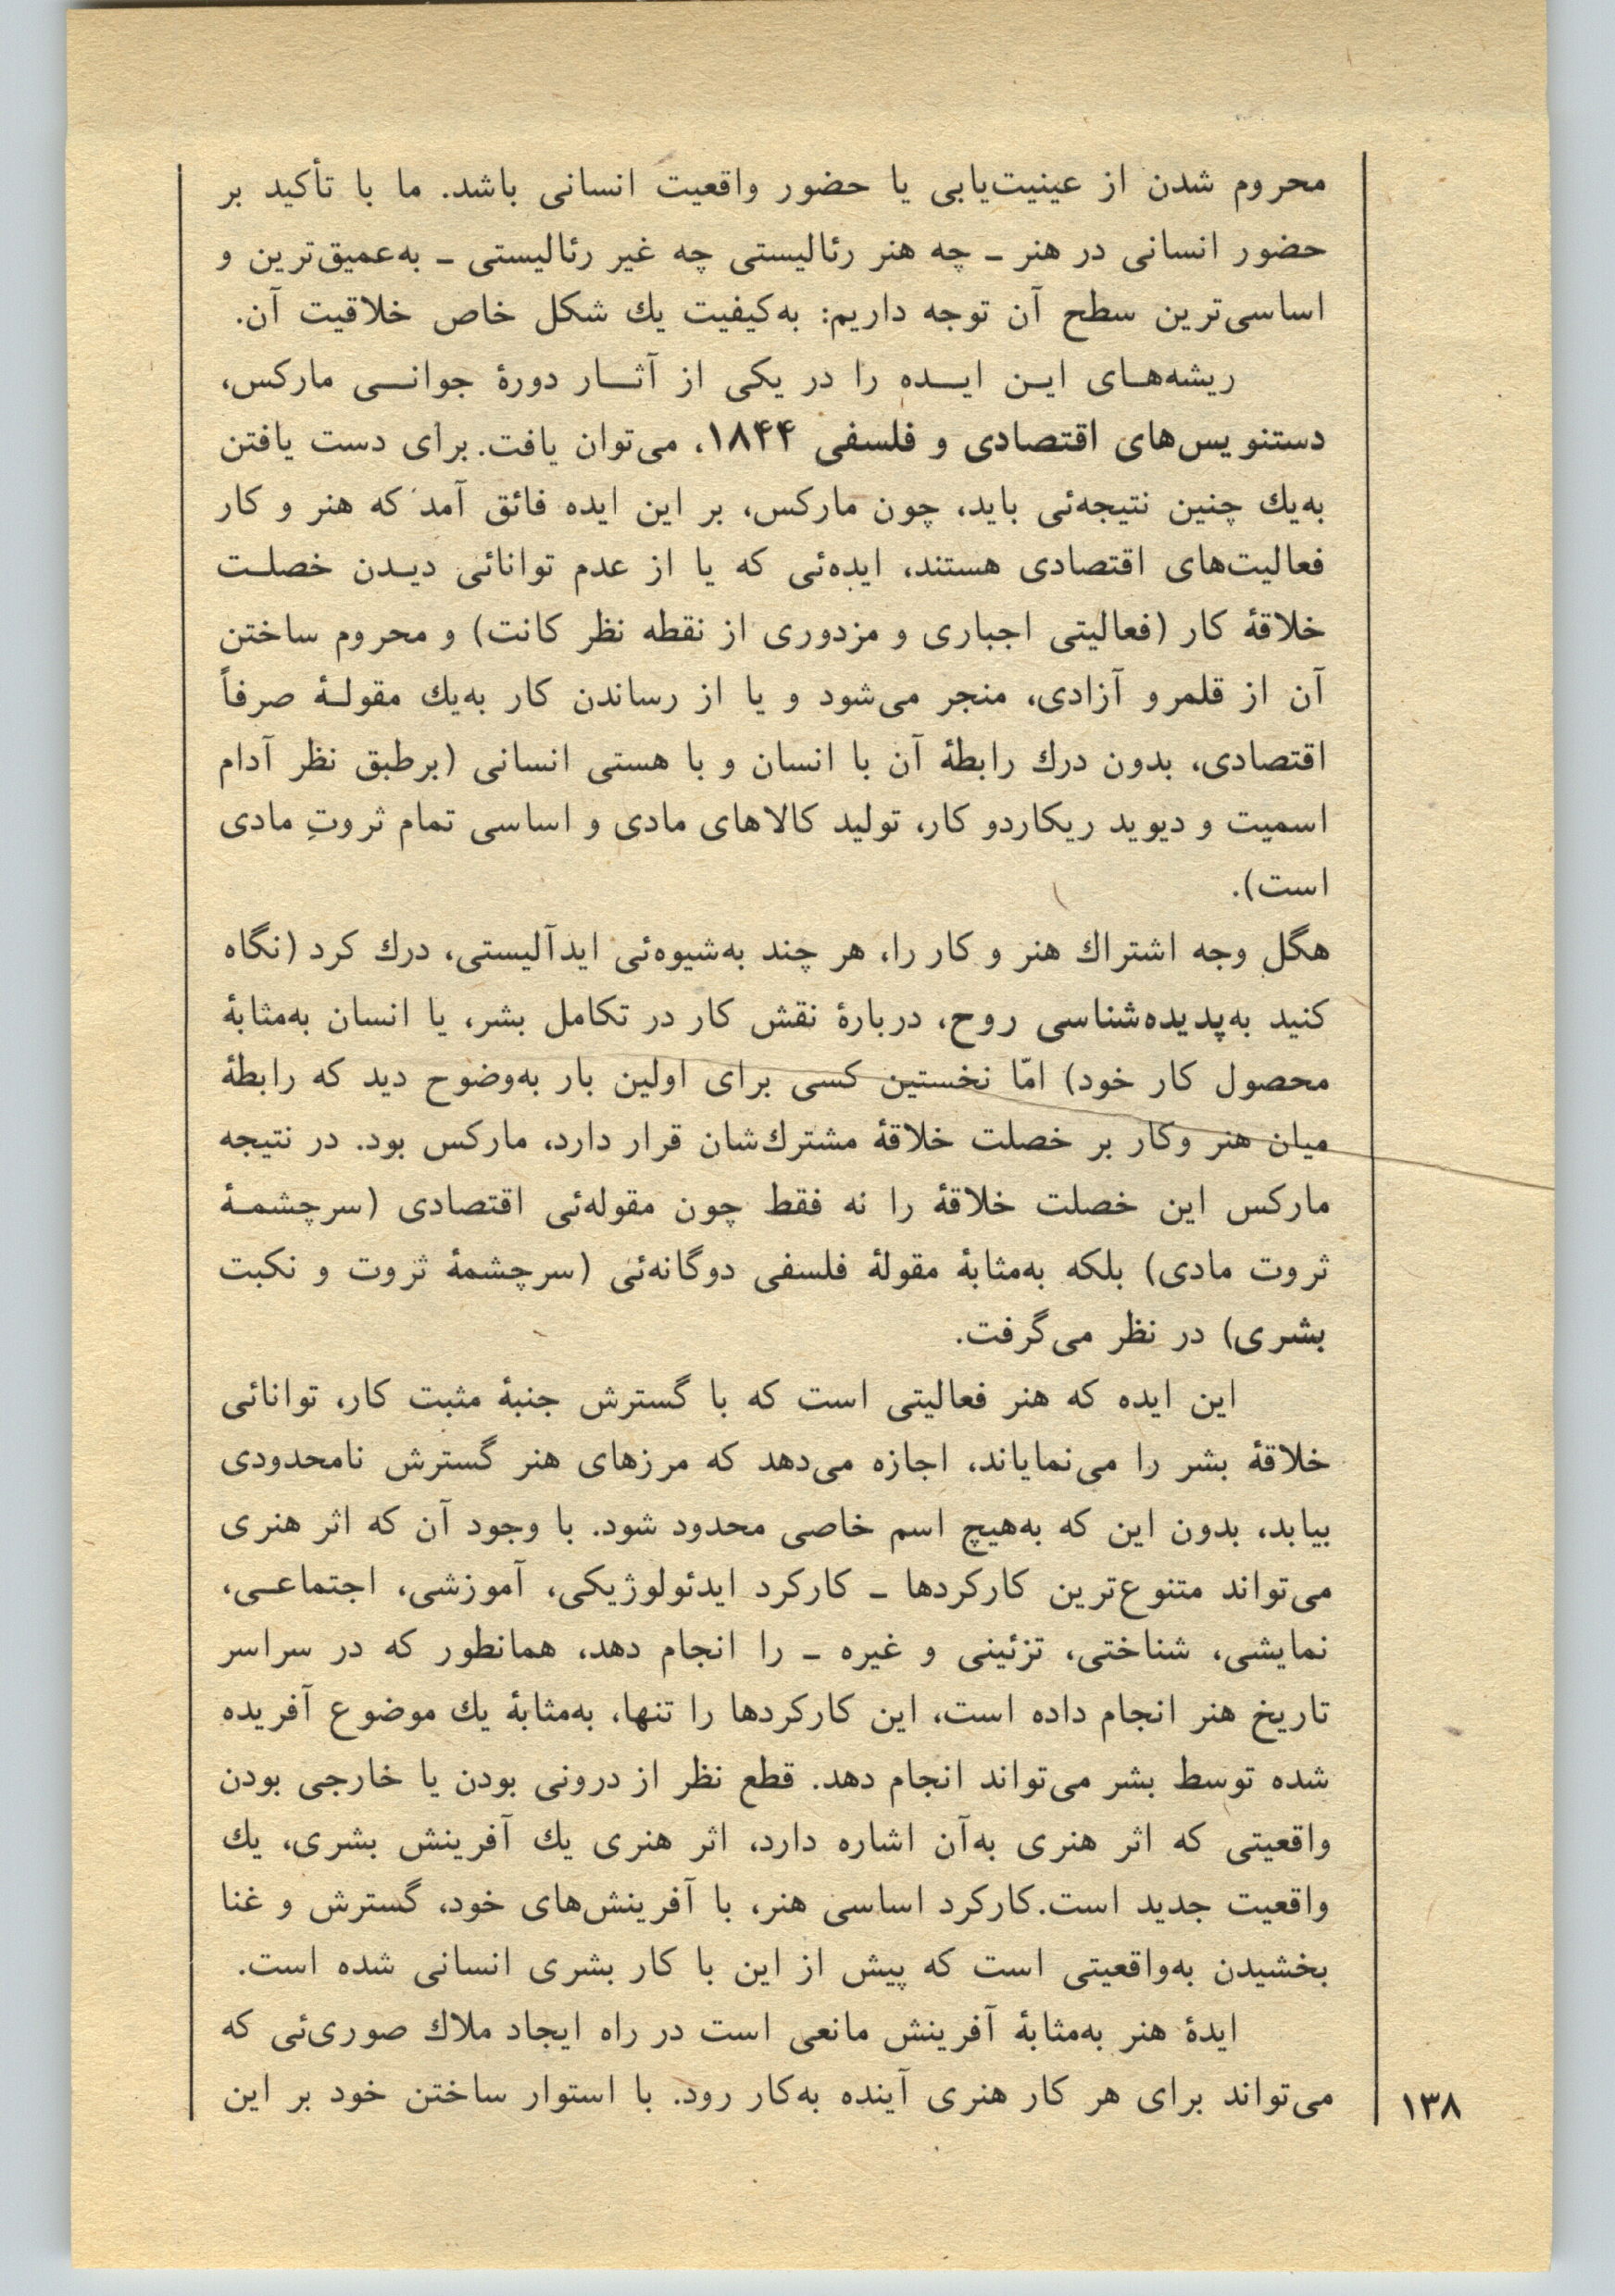 محروم شدن از عینیت‌یابی یا حضور واقعیت انسانی باشد. ما با تأکید بر
حضور انسانی در هنر ـ چه هنر رئالیستی چه غیر رئالیستی ـ به‌عمیق‌ترین و
اساسی‌ترین سطح آن توجه داریم: به‌کیفیت یك شکل خاص خلاقیت آن.
ریشه‌هـای ایـن ایـده را در یکی از آثـار دورهٔ جوانـی مارکس،
دستنویس‌های اقتصادی و فلسفی ۱۸۴۴، می‌توان یافت. برای دست یافتن
به‌یك چنین نتیجه‌ئی باید، چون مارکس، بر این ایده فائق آمد که هنر و کار
فعالیت‌های اقتصادی هستند، ایده‌ئی که یا از عدم توانائی دیـدن خصلـت
خلاقهٔ کار (فعالیتی اجباری و مزدوری از نقطه نظر کانت) و محروم ساختن
آن از قلمرو آزادی، منجر می‌شود و یا از رساندن کار به‌یك مقولـهٔ صرفاً
اقتصادی، بدون درك رابطهٔ آن با انسان و با هستی انسانی (برطبق نظر آدام
اسمیت و دیوید ریکاردو کار، تولید کالاهای مادی و اساسی تمام ثروتِ مادی
است).
هگل وجه اشتراك هنر و کار را، هر چند به‌شیوه‌ئی ایدآلیستی، درك کرد (نگاه
کنید به‌پدیده‌شناسی روح، دربارهٔ نقش کار در تکامل بشر، یا انسان به‌مثابهٔ
محصول کار خود) امّا نخستین کسی برای اولین بار به‌وضوح دید که رابطهٔ
میان هنر وکار بر خصلت خلاقهٔ مشترك‌شان قرار دارد، مارکس بود. در نتیجه
مارکس این خصلت خلاقهٔ را نه فقط چون مقوله‌ئی اقتصادی (سرچشمـهٔ
ثروت مادی) بلکه به‌مثابهٔ مقولهٔ فلسفی دوگانه‌ئی (سرچشمهٔ ثروت و نکبت
بشری) در نظر می‌گرفت.
این ایده که هنر فعالیتی است که با گسترش جنبهٔ مثبت کار، توانائی
خلاقهٔ بشر را می‌نمایاند، اجازه می‌دهد که مرزهای هنر گسترش نامحدودی
بیابد، بدون این که به‌هیچ اسم خاصی محدود شود. با وجود آن که اثر هنری
می‌تواند متنوع‌ترین کارکردها ـ کارکرد ایدئولوژیکی، آموزشی، اجتماعـی،
نمایشی، شناختی، تزئینی و غیره ـ را انجام دهد، همانطور که در سراسر
تاریخ هنر انجام داده است، این کارکردها را تنها، به‌مثابهٔ یك موضوع آفریده
شده توسط بشر می‌تواند انجام دهد. قطع نظر از درونی بودن یا خارجی بودن
واقعیتی که اثر هنری به‌آن اشاره دارد، اثر هنری یك آفرینش بشری، یك
واقعیت جدید است.کارکرد اساسی هنر، با آفرینش‌های خود، گسترش و غنا
بخشیدن به‌واقعیتی است که پیش از این با کار بشری انسانی شده است.
ایدهٔ هنر به‌مثابهٔ آفرینش مانعی است در راه ایجاد ملاك صوری‌ئی که
می‌تواند برای هر کار هنری آینده به‌کار رود. با استوار ساختن خود بر این
۱۳۸